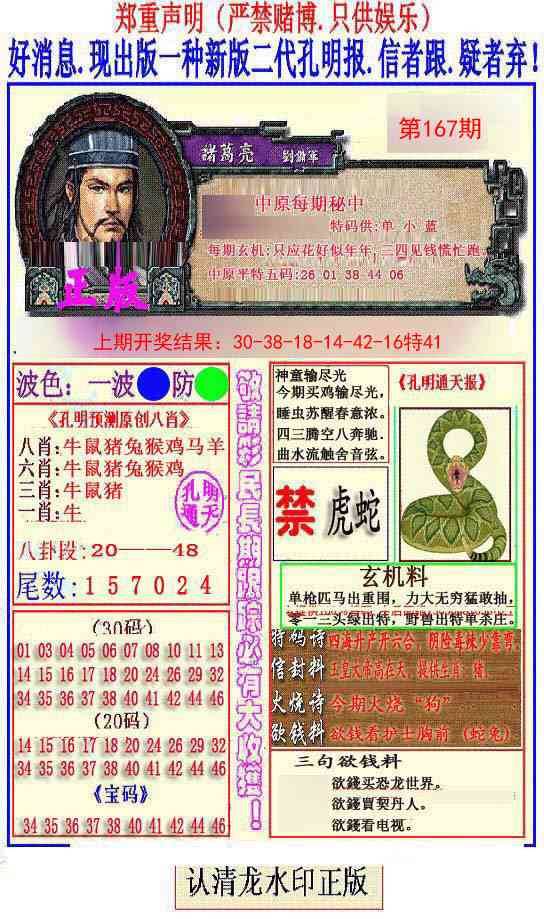 郑重声明（严禁赌博.只供娱乐）
好消息.现出版一种新版二代孔明报.信者跟.疑者弃!
第167期
諸葛亮 劉備軍
中原每期秘中
特码供:单 小 蓝
每期玄机:只应花好似年年,二四见钱慌忙跑.
中原平特五码:26 01 38 44 06
正版
上期开奖结果：30-38-18-14-42-16特41
波色：一波 防
《孔明预测原创八肖》
八肖:牛鼠猪兔猴鸡马羊
六肖:牛鼠猪兔猴鸡
三肖:牛鼠猪
一肖:牛
孔明
通天
八卦段:20——48
尾数:157024
(30码)
01 03 04 05 06 07 08 10 11 13
14 15 16 17 18 20 24 26 29 32
34 35 36 37 38 40 41 42 44 46
(20码)
14 15 16 17 18 20 24 26 29 32
34 35 36 37 38 40 41 42 44 46
《宝码》
34 35 36 37 38 40 41 42 44 46
敬請彩民長期跟踪必有大收獲！
神童输尽光
今期买鸡输尽光,
睡虫苏醒春意浓。
四三腾空八奔驰.
曲水流触舍音弦。
《孔明通天报》
禁 虎蛇
玄机料
单枪匹马出重围，力大无穷猛敢抽,
零一三头绿出特，野兽出特单杀庄。
特码诗 四海升产开六合，阴险毒辣少靠弯.
信封料 玉皇大帝高在天，提供生肖：猪.
火烧诗 今期火烧“狗”
欲钱料 欲钱看护士胸前（蛇兔）
三句欲钱料
欲錢买恐龙世界。
欲錢買契丹人。
欲錢看电视。
认清龙水印正版